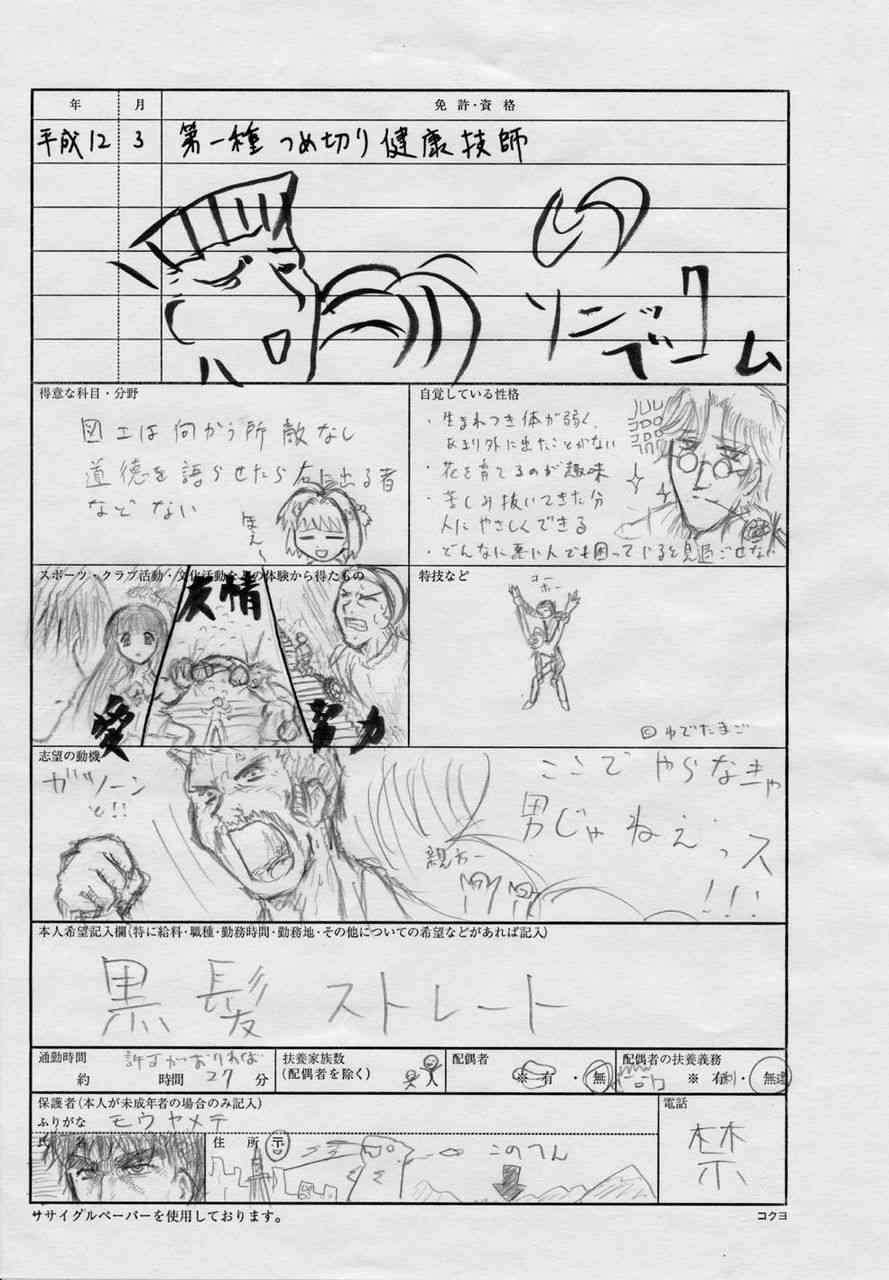 年 月 免許・資格
平成12 3 第一種つめ切り健康技師
ソニック
ブーム
得意な科目・分野
図工は向かう所敵なし
道徳を語らせたら右に出る者
などない
ほえ〜
自覚している性格
・生まれつき体が弱く、
あまり外に出たことがない
・花を育てるのが趣味
・苦しみ抜いてきた分
人にやさしくできる
・どんなに悪い人でも困っていると見過ごせない
スポーツ・クラブ活動・文化活動などの体験から得たもの
友情
愛
努力
特技など
コー
ホー
©ゆでたまご
志望の動機
ガツーン
と!!
親方ー
ここでやらなきゃ
男じゃねえっス
!!!
本人希望記入欄(特に給料・職種・勤務時間・勤務地・その他についての希望などがあれば記入)
黒髪ストレート
通勤時間 許可がおりれば
約 時間 27 分
扶養家族数
(配偶者を除く)
配偶者
※有・無
配偶者の扶養義務
※有・無
保護者(本人が未成年者の場合のみ記入)
ふりがな モウヤメテ
氏名
住所 〒
このへん
電話
禁
ササイグルペーパーを使用しております。
コクヨ